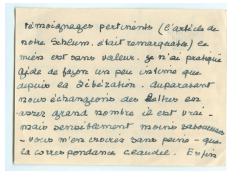 témoignages pertinents (l'article de
notre Schlum. était remarquable) le
mien est sans valeur. Je n'ai pratiqué
Gide de façon un peu intime que
depuis la libération. Auparavant
nous échangions des lettres en
assez grand nombre il est vrai -
mais sensiblement moins savoureuses
- vous m'en croirez sans peine - que
la correspondance Claudel. Enfin